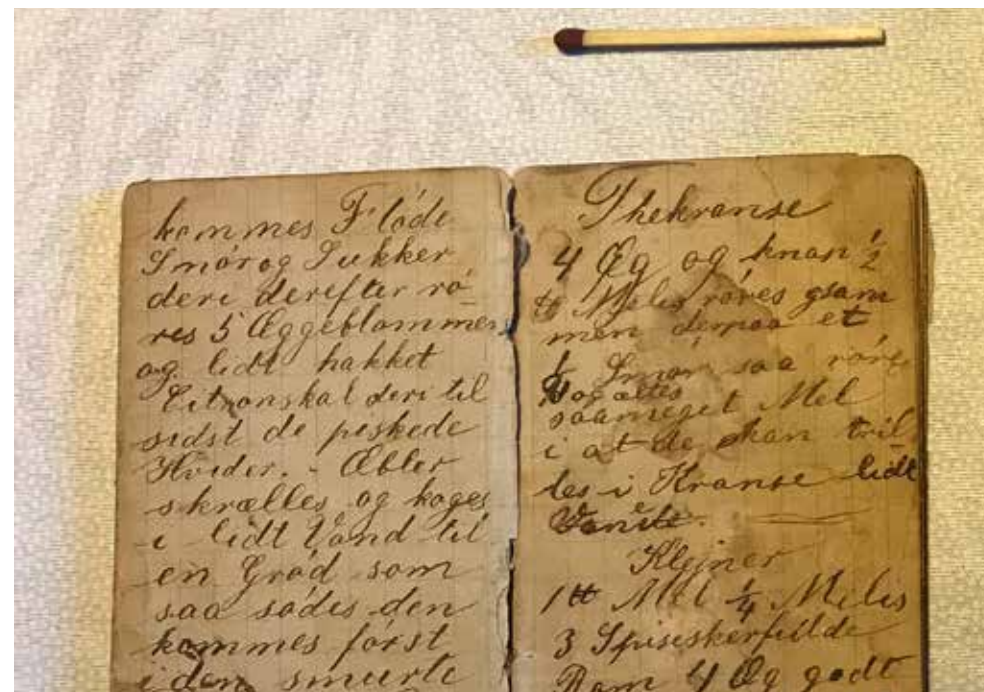 kommes Flöde
Smör og Sukker
deri derefter rö-
res 5 Æggeblommer
og lidt hakket
Citronskal deri til
sidst de piskede
Hvider. - Æbler
skrælles og koges
i lidt Vand til
en Gröd som
saa södes den
kommes först
i den smurte
Thekranse
4 Æg og knap ½
℔ Melis röres
men derpaa et
¼ Smör saa röres
og æltes
saameget Mel
i at de kan tril
les i Kranse lidt
Vanille.
Klejner
1 ℔ Mel ¼ Melis
3 Spiseskefulde
Rom 4 Æg godt